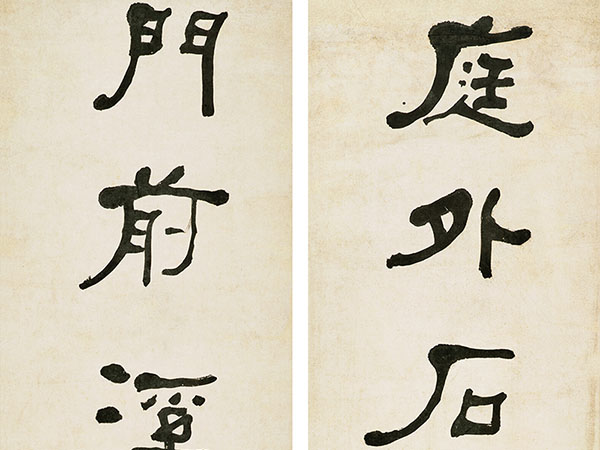 庭外石
門前